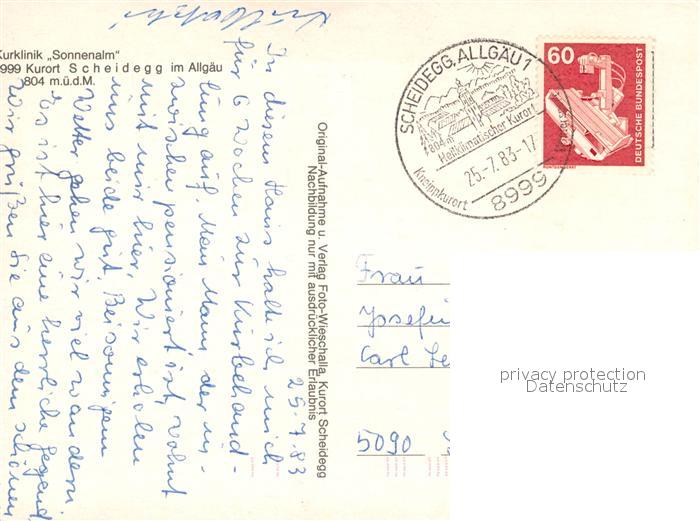 Kurklinik „Sonnenalm"
8999 Kurort Scheidegg im Allgäu
804 m.ü.d.M.
25.7.83
In diesem Haus halte ich mich
für 6 Wochen zur Kurbehand-
lung auf. Mein Mann der in-
zwischen pensioniert ist, wohnt
mit mir hier. Wir erholen
uns beide gut. Bei sonnigem
Wetter gehen wir viel wandern.
Es ist hier eine herrliche Gegend.
Wir grüßen Sie aus dem schönen
Original-Aufnahme u. Verlag Foto-Wieschalla, Kurort Scheidegg
Nachbildung nur mit ausdrücklicher Erlaubnis
SCHEIDEGG, ALLGÄU 1
804 m
Heilklimatischer Kurort
25.-7.83-17
Kneippkurort
8999
60
DEUTSCHE BUNDESPOST
RÖNTGENGERÄT
Frau
Josefin
Carl
5090
privacy protection
Datenschutz